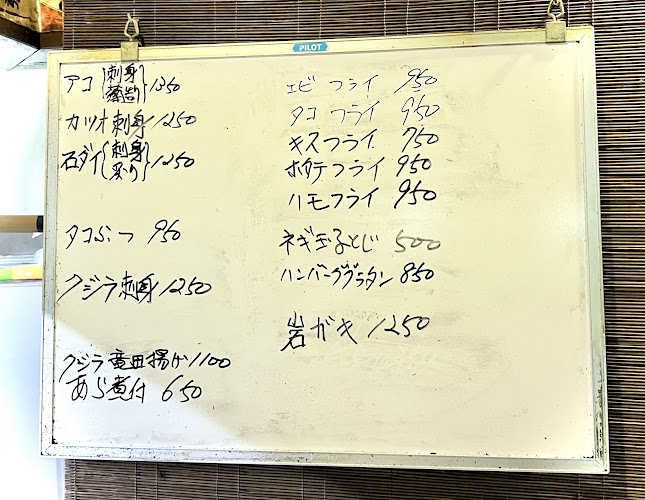 PILOT
アコ{刺身 1350
カツオ刺身 1250
石ダイ{刺身 炙り} 1250
タコぶつ 950
クジラ刺身 1250
クジラ竜田揚げ 1100
あら煮付 650
エビフライ 950
タコフライ 950
キスフライ 750
ホタテフライ 950
ハモフライ 950
ネギ玉子とじ 500
ハンバーググラタン 850
岩ガキ 1250